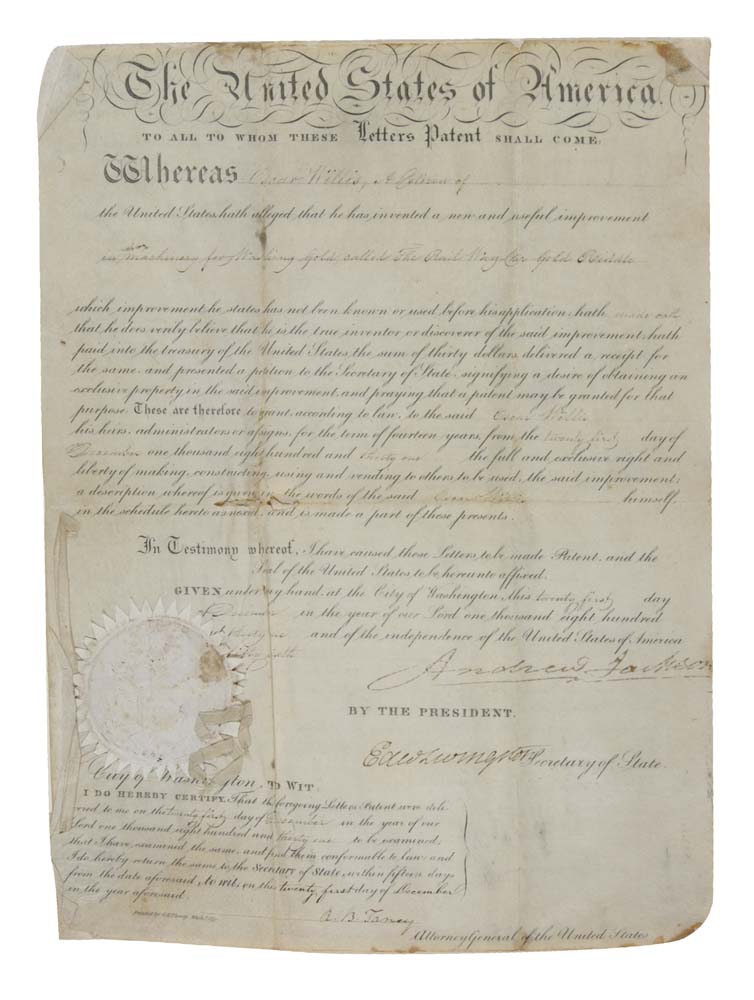 The United States of America.
TO ALL TO WHOM THESE Letters Patent SHALL COME:
Whereas Oscar Willis, A Citizen of
the United States, hath alleged that he has invented a new and useful improvement
in machinery for Washing Gold, called The Rail Way Car Gold
which improvement he states has not been known or used before his application; hath made oath
that he does verily believe that he is the true inventor or discoverer of the said improvement; hath
paid into the treasury of the United States, the sum of thirty dollars, delivered a receipt for
the same and presented a petition to the Secretary of State, signifying a desire of obtaining an
exclusive property in the said improvement, and praying that a patent may be granted for that
purpose. These are therefore to grant, according to law, to the said Oscar Willis
his heirs, administrators or assigns, for the term of fourteen years, from the twenty first day of
December one thousand eight hundred and thirty one the full and exclusive right and
liberty of making, constructing, using and vending to others to be used, the said improvement;
a description whereof is given in the words of the said Oscar Willis himself,
in the schedule hereto annexed, and is made a part of these presents.
In Testimony whereof, I have caused these Letters to be made Patent, and the
Seal of the United States to be hereunto affixed.
GIVEN under my hand, at the City of Washington, this twenty first day
December in the year of our Lord one thousand eight hundred
and of the independence of the United States of America
Andrew Jackson
BY THE PRESIDENT.
Edw Livingston Secretary of State.
City of Washington, TO WIT:
I DO HEREBY CERTIFY, That the foregoing Letters Patent were deli-
vered to me on the twenty first day of December in the year of our
Lord one thousand eight hundred and thirty one to be examined;
that I have examined the same, and find them conformable to law and
I do hereby return the same to the Secretary of State, within fifteen days
from the date aforesaid, to wit, on this twenty first day of December
in the year aforesaid.
R. B. Taney
Attorney General of the United States